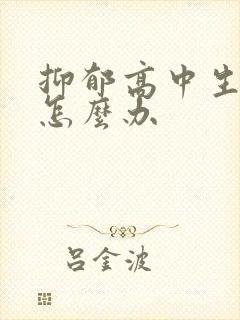 抑郁高中生
怎麼办
吕金波